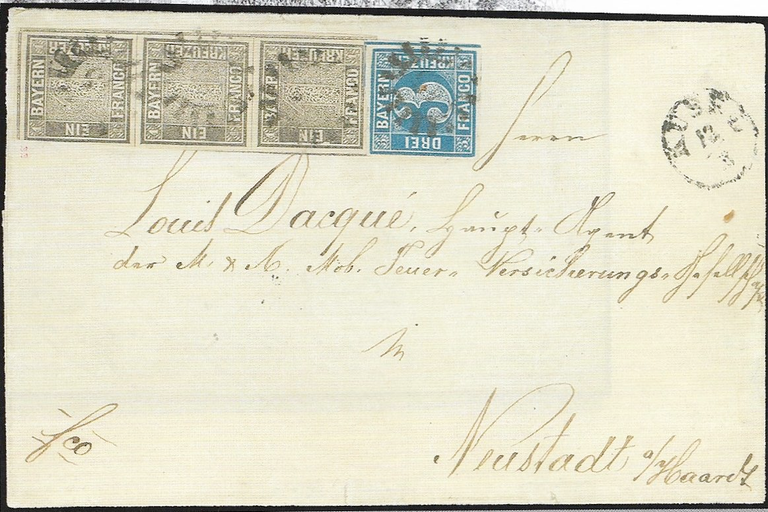 KREUZER BAYERN FRANCO EIN
KREUZER BAYERN FRANCO EIN
KREUZER BAYERN FRANCO EIN
KREUZER BAYERN FRANCO 3 DREI
Herrn
Louis Dacqué, Haupt-Agent
der M. & A. Mob. Feuer-Versicherungs-Gesellschaft
in
fco
Neustadt a/Haardt